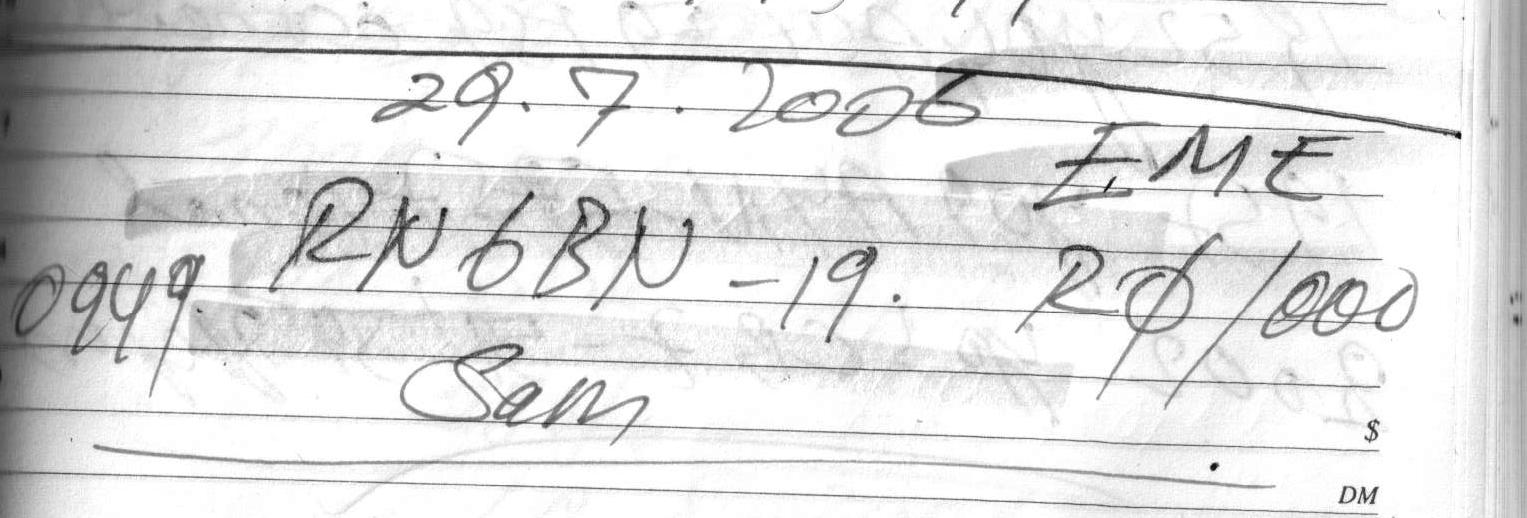 29.7.2006
EME
0949 RN6BN -19. RØ/000
Sam
$
DM